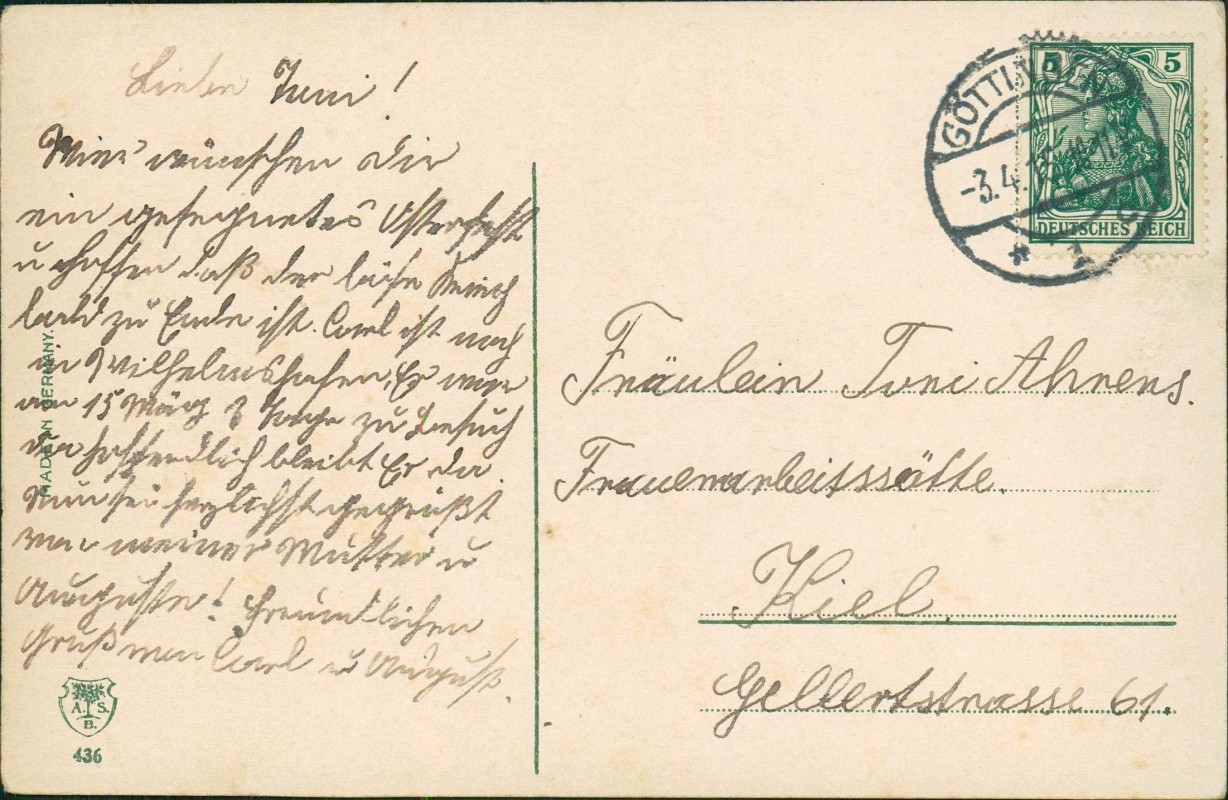 Liebe Toni!
Wier wünschen dir
ein gesegnetes Osterfest
u hoffen daß der böse Krieg
bald zu Ende ist. Carl ist noch
in Wilhelmshafen, Er war
am 15 März 8 Tage zu Besuch
da hoffendlich bleibt Er da.
Nun sei herzlichst gegrüßt
von meiner Mutter u
Auguste! Freundlichen
Gruß von Carl u August.
MADE IN GERMANY.
A. S.
B.
436
GÖTTINGEN
-3.4.15 11-12
* 1 c
5 5
DEUTSCHES REICH
Fräulein Toni Ahrens.
Frauenarbeitssätte.
Kiel.
Gellertstrasse 61.